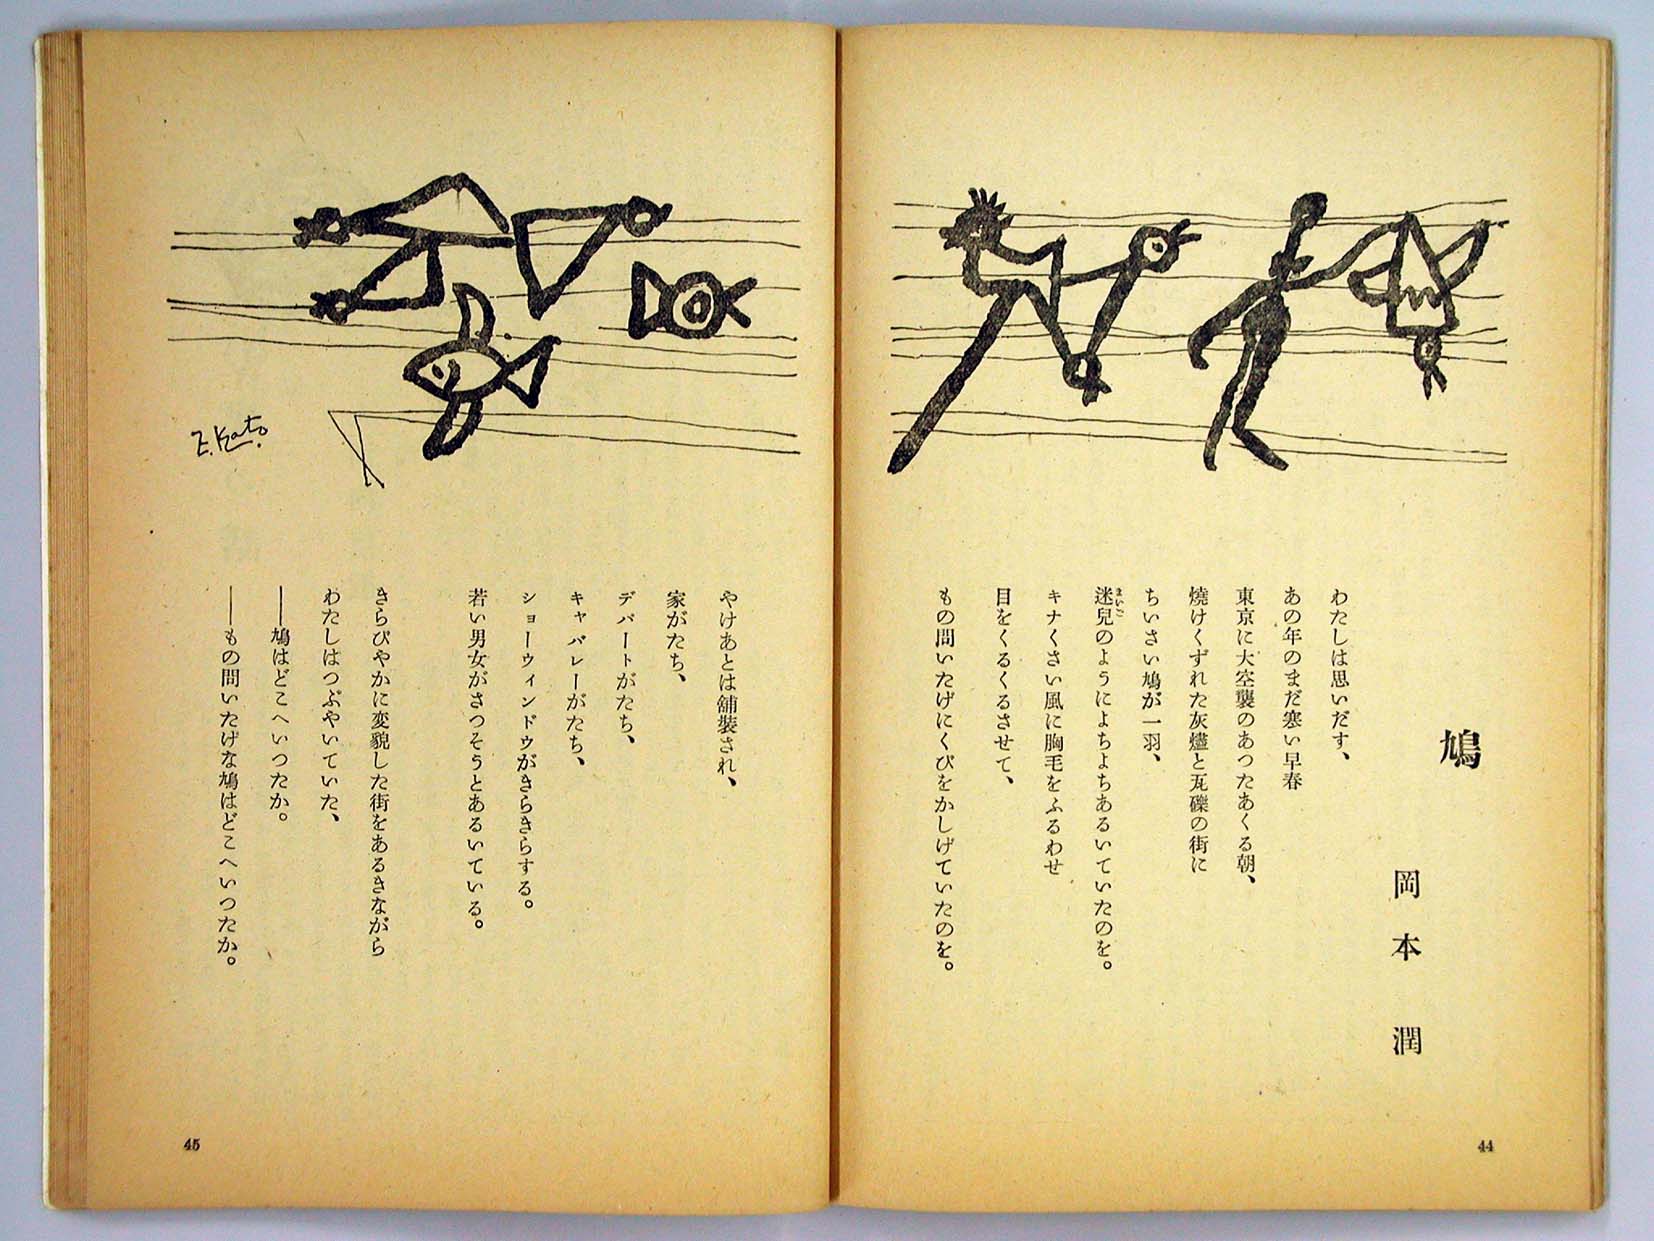 鳩
岡本潤
わたしは思いだす、
あの年のまだ寒い早春
東京に大空襲のあつたあくる朝、
燒けくずれた灰燼と瓦礫の街に
ちいさい鳩が一羽、
迷兒のようによちよちあるいていたのを。
まいご
キナくさい風に胸毛をふるわせ
目をくるくるさせて、
もの問いたげにくびをかしげていたのを。
44
やけあとは舖裝され、
家がたち、
デパートがたち、
キャバレーがたち、
ショーウィンドウがきらきらする。
若い男女がさつそうとあるいている。
きらびやかに変貌した街をあるきながら
わたしはつぶやいていた、
――鳩はどこへいつたか。
――もの問いたげな鳩はどこへいつたか。
Z. Kato.
45